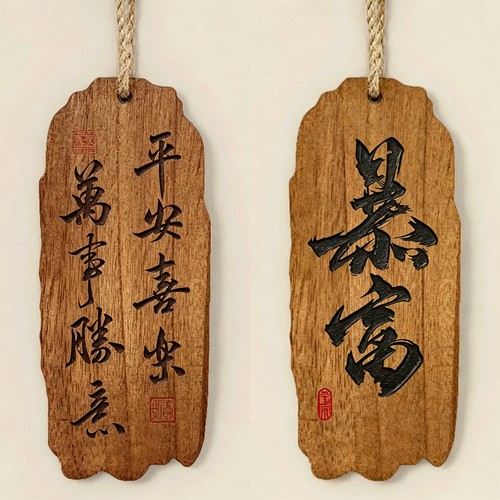 平安喜樂
萬事勝意
暴富